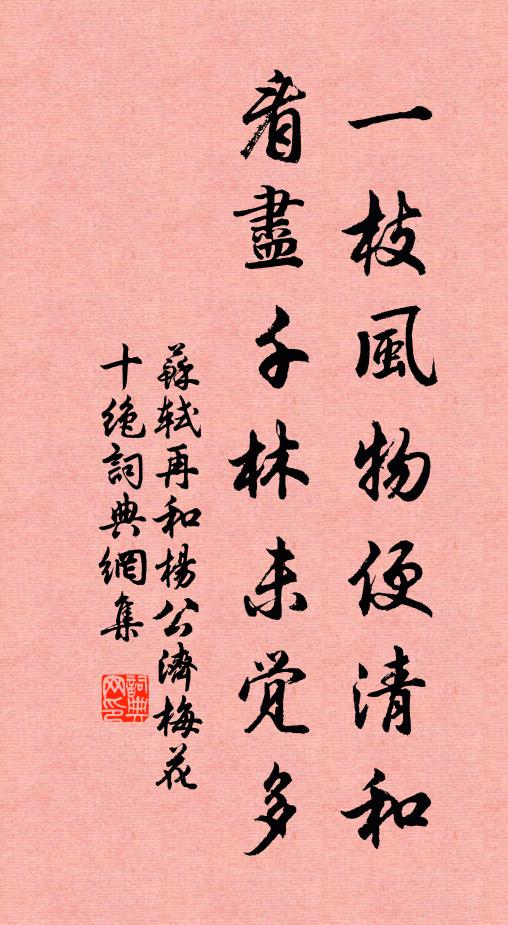 一枝風物便清和
看盡千林未覺多
蘇軾再和楊公濟梅花
十絕詞典網集
詞典
网印